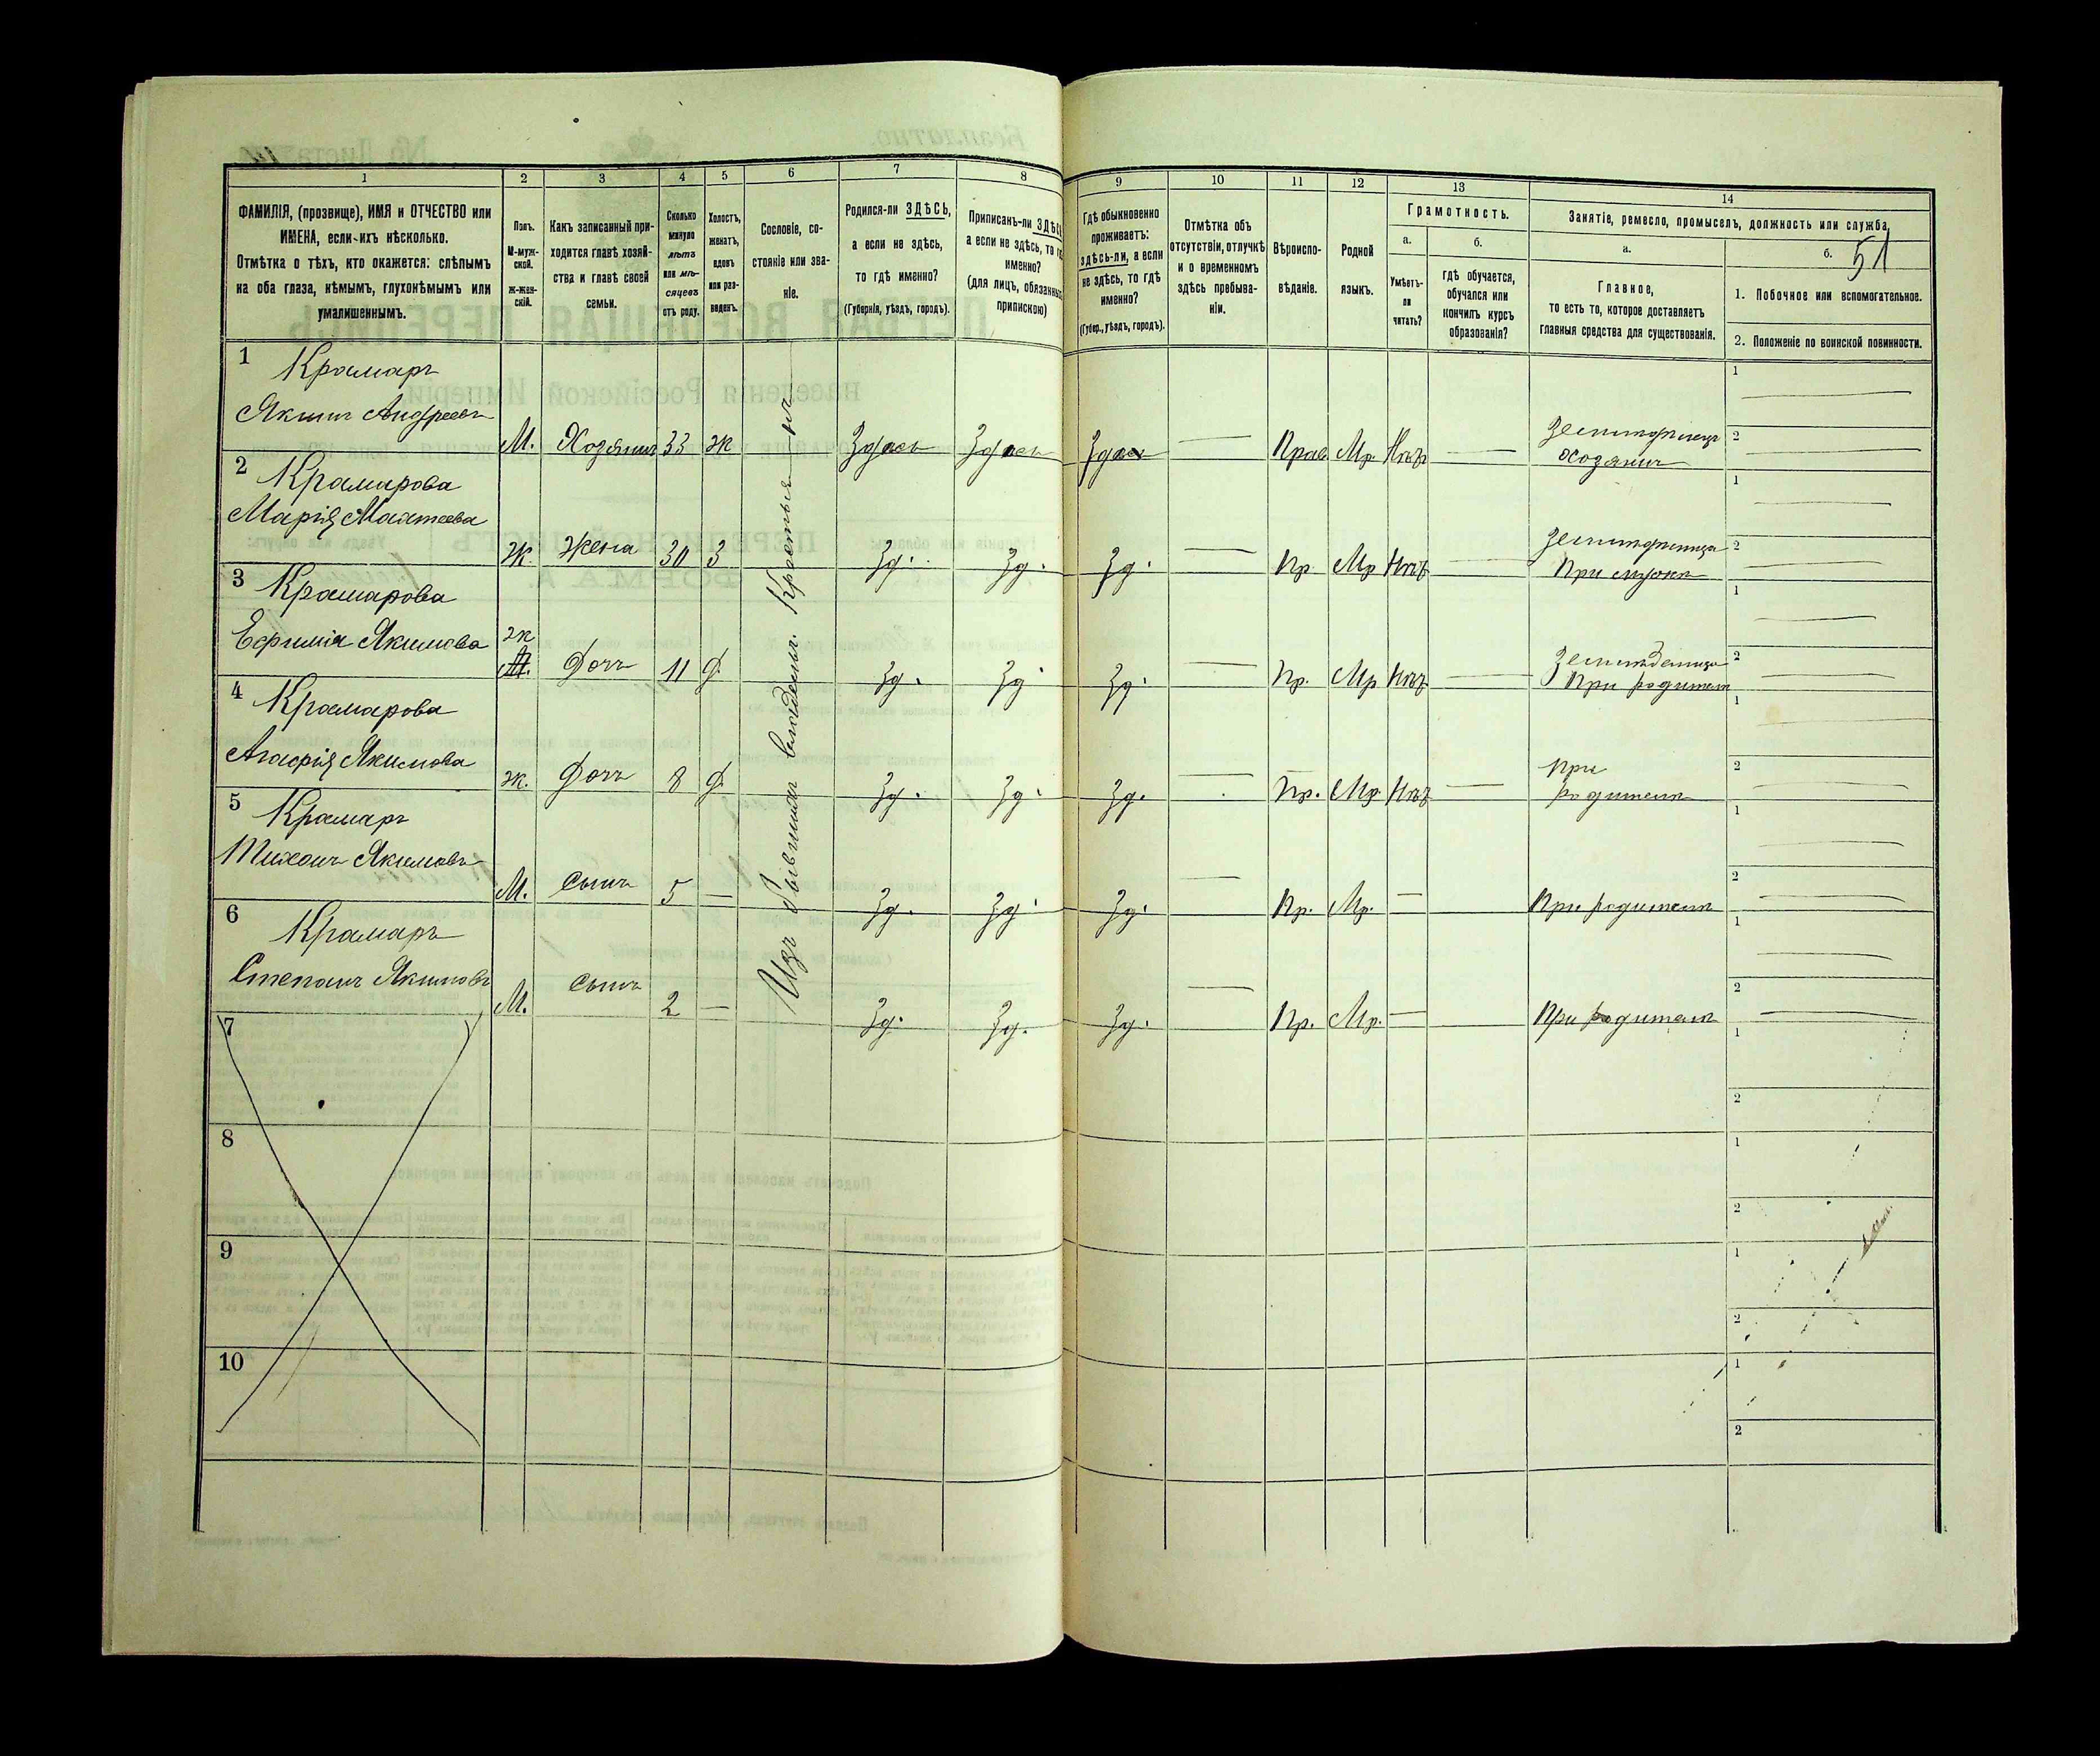 51
1
2
3
4
5
6
7
8
9
10
11
12
13
14
ФАМИЛІЯ, (прозвище), ИМЯ и ОТЧЕСТВО или
ИМЕНА, если ихъ нѣсколько.
Отмѣтка о тѣхъ, кто окажется: слѣпымъ
на оба глаза, нѣмымъ, глухонѣмымъ или
умалишеннымъ.
Полъ.
М-муж-
ской.
ж-жен-
скій.
Какъ записанный при-
ходится главѣ хозяй-
ства и главѣ своей
семьи.
Сколько
минуло
лѣтъ
или мѣ-
сяцевъ
отъ роду.
Холостъ,
женатъ,
вдовъ
или раз-
веденъ.
Сословіе, со-
стояніе или зва-
ніе.
Родился-ли ЗДѢСЬ,
а если не здѣсь,
то гдѣ именно?
(Губернія, уѣздъ, городъ).
Приписанъ-ли ЗДѢСЬ
а если не здѣсь, то гдѣ
именно?
(для лицъ, обязанныхъ
припискою)
Гдѣ обыкновенно
проживаетъ:
здѣсь-ли, а если
не здѣсь, то гдѣ
именно?
(Губер., уѣздъ, городъ).
Отмѣтка объ
отсутствіи, отлучкѣ
и о временномъ
здѣсь пребыва-
ніи.
Вѣроиспо-
вѣданіе.
Родной
языкъ.
Грамотность.
а.
Умѣетъ-
ли
читать?
б.
гдѣ обучается,
обучался или
кончилъ курсъ
образованія?
Занятіе, ремесло, промыселъ, должность или служба,
а.
Главное,
то есть то, которое доставляетъ
главныя средства для существованія.
б.
1. Побочное или вспомогательное.
2. Положеніе по воинской повинности.
Изъ бывшихъ владѣльч. Крестья-нъ
1 Крамаръ
Якимъ Андреевъ М. Хозяинъ 33 ж Здѣсь Здѣсь Здѣсь — Прав. Мр. Нѣтъ — Землидѣлецъ
хозяинъ
2 Крамарова
Марія Матѳеева Ж. Жена 30 З Зд. Зд. Зд. — Пр. Мр Нѣтъ — Землидѣлица
При мужѣ
3 Крамарова
Ефимія Якимова ж Дочь 11 Д Зд. Зд. Зд. — Пр. Мр Нѣтъ — Землидѣлица
При родител
4 Крамарова
Агафія Якимова ж. Дочь 8 Д Зд. Зд. Зд. — Пр. Мр Нѣтъ — При
родителѣ
5 Крамаръ
Михаилъ Якимовъ М. Сынъ 5 — Зд. Зд. Зд. — Пр. Мр. — При родителѣ
6 Крамаръ
Степанъ Якимовъ М. Сынъ 2 — Зд. Зд. Зд. — Пр. Мр. — При родителѣ
7
8
9
10